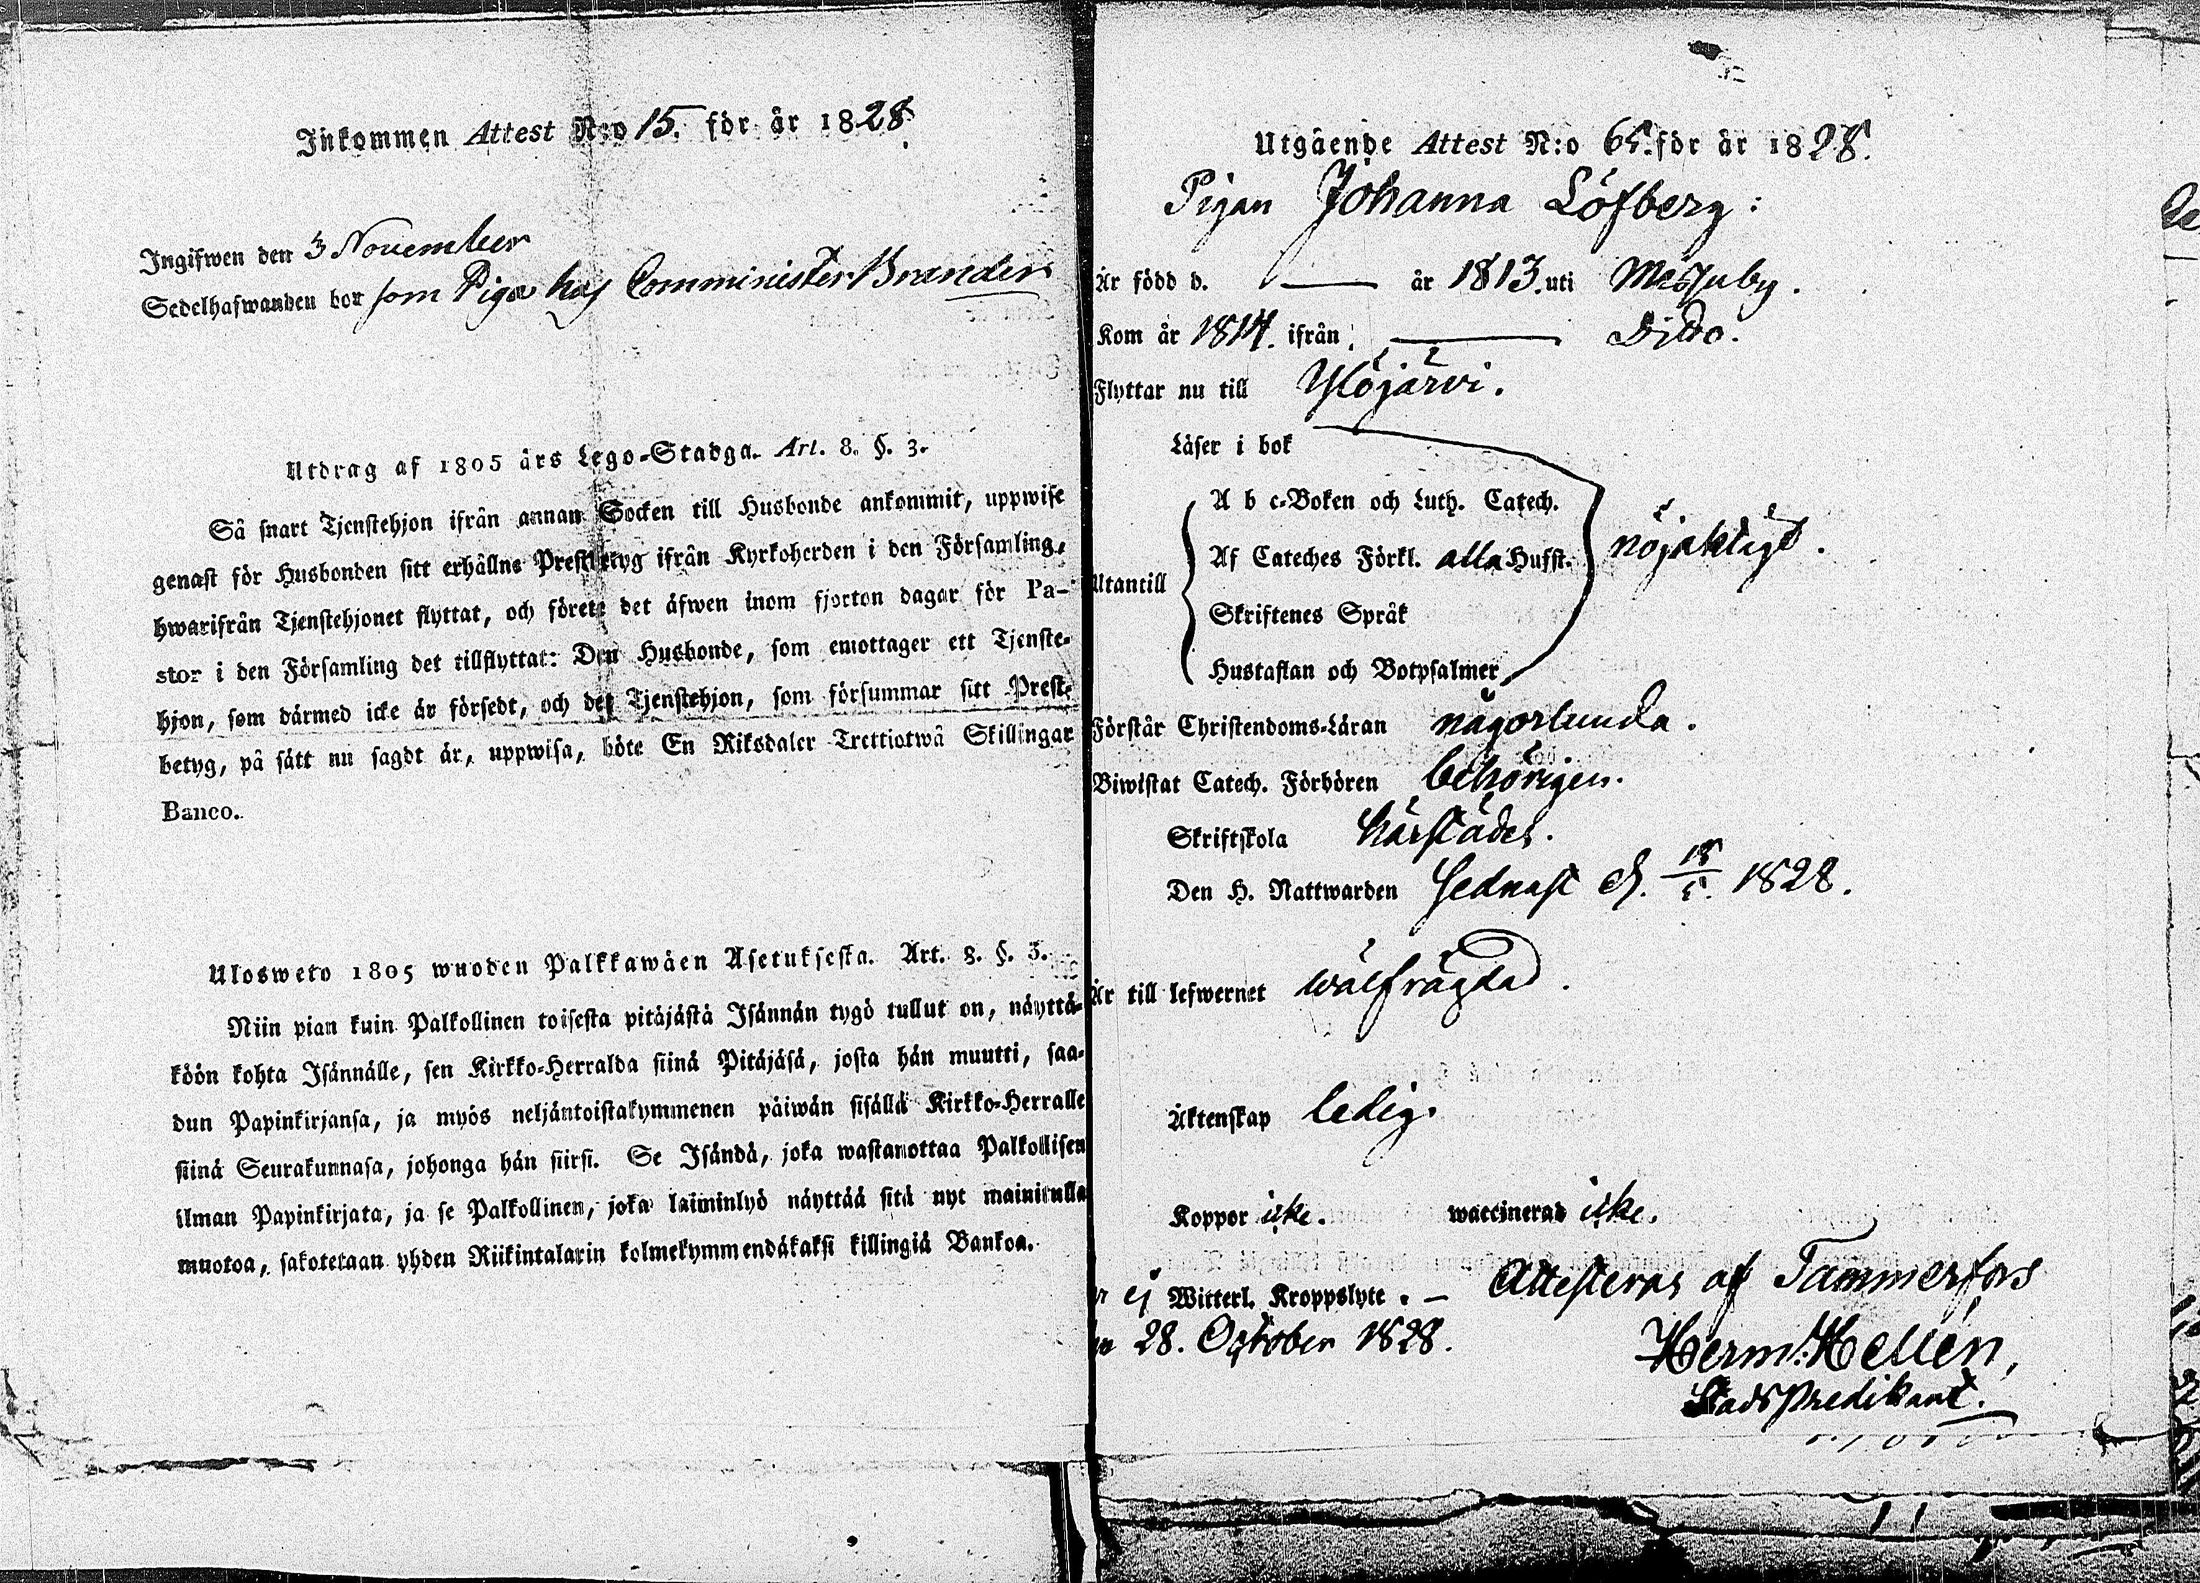 Inkommen Attest N:o 15. för år 1828.
Ingifwen den 3 November
Sedelhafwanden bor som Piga hos Comminister Brander
Utdrag af 1805 års Lego-Stadga. Art. 8. §. 3.
Så snart Tjenstehjon ifrån annan Socken till Husbonde ankommit, uppwise
genast för Husbonden sitt erhållne Prestbetyg ifrån Kyrkoherden i den Församling,
hwarifrån Tjenstehjonet flyttat, och förete det äfwen inom fjorton dagar för Pa-
stor i den Församling det tillflyttat: Den Husbonde, som emottager ett Tjenste-
hjon, som därmed icke är försedt, och det Tjenstehjon, som försummar sitt Prest-
betyg, på sätt nu sagdt är, uppwisa, böte En Riksdaler Trettiotwå Skillingar
Banco.
Ulosweto 1805 wuoden Palkkawäen Asetuksesta. Art. 8. §. 3.
Niin pian kuin Palkollinen toisesta pitäjästä Isännän tygö tullut on, näyttä-
köön kohta Isännälle, sen Kirkko-Herralda siinä Pitäjäsä, josta hän muutti, saa-
dun Papinkirjansa, ja myös neljäntoistakymmenen päiwän sisällä Kirkko-Herralle
siinä Seurakunnasa, johonga hän siirsi. Se Isändä, joka wastanottaa Palkollisen
ilman Papinkirjata, ja se Palkollinen, joka laiminlyö näyttää sitä nyt mainitulla
muotoa, sakotetaan yhden Riikintalarin kolmekymmendäkaksi killingiä Bankoa.
Utgående Attest N:o 65. för år 1828.
Pigan Johanna Löfberg:
Är född d. — år 1813. uti Messuby.
Kom år 1814. ifrån — Ditto.
Flyttar nu till Ylöjärvi.
Läser i bok
A b c-Boken och Luth. Catech.
Af Cateches Förkl. alla Hufst. nöjaktigt.
Utantill
Skriftenes Språk
Hustaflan och Botpsalmer
Förstår Christendoms-Läran någorlunda.
Biwistat Catech. Förhören behörigen.
Skriftskola härstädes.
Den H. Nattwarden sednast d. 18/5. 1828.
Är till lefwernet wälfrägdad.
Äktenskap ledig.
Koppor icke. waccinerad icke.
ej Witterl. Kroppslyte. — Attesteras af Tammerfors
28. October 1828.
Herm: Hellén,
Stads Predikant.